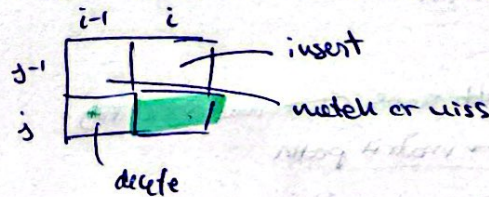 i-1 i
j-1 insert
match or miss
j
delete